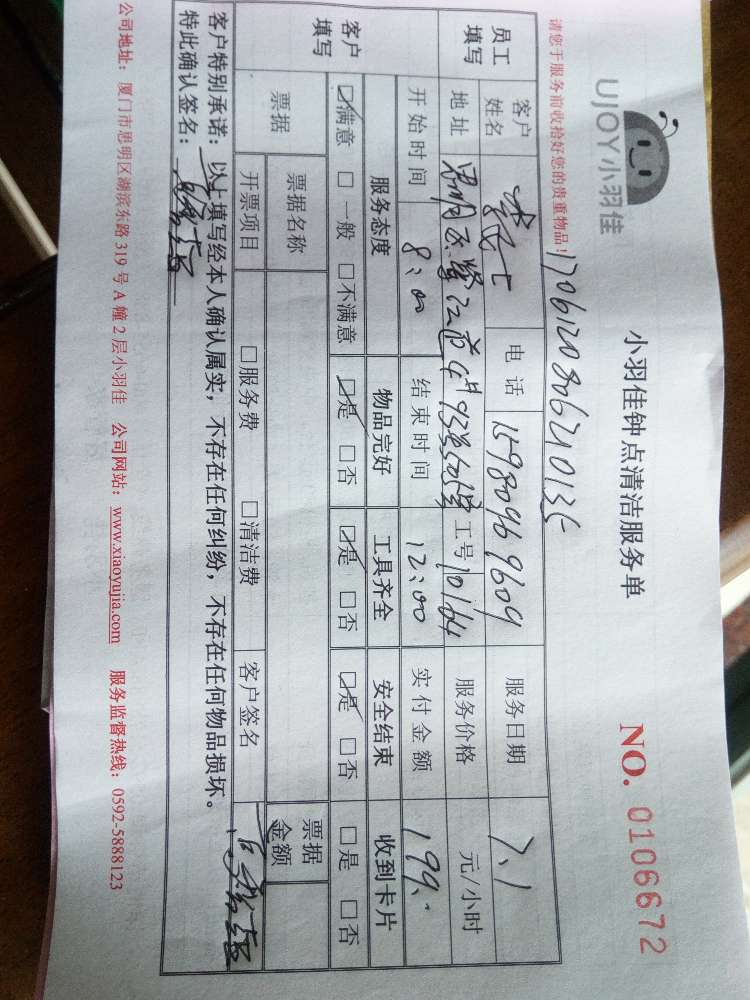 UJOY小羽佳
小羽佳钟点清洁服务单
NO. 0106672
请您于服务前收拾好您的贵重物品！
1706120806210135
员工填写 客户姓名 电话 15980969609 服务日期 7.1
地址 工号 10164 服务价格 元/小时
开始时间 8:00 结束时间 12:00 实付金额 199.
客户填写 服务态度 物品完好 工具齐全 安全结束 收到卡片
☑满意 □一般 □不满意 ☑是 □否 ☑是 □否 ☑是 □否 □是 □否
票据 票据名称 票据金额
开票项目 □服务费 □清洁费 客户签名
客户特别承诺：以上填写经本人确认属实，不存在任何纠纷，不存在任何物品损坏。
特此确认签名：
公司地址：厦门市思明区湖滨东路 319 号 A 幢 2 层小羽佳 公司网站：www.xiaoyujia.com 服务监督热线：0592-5888123